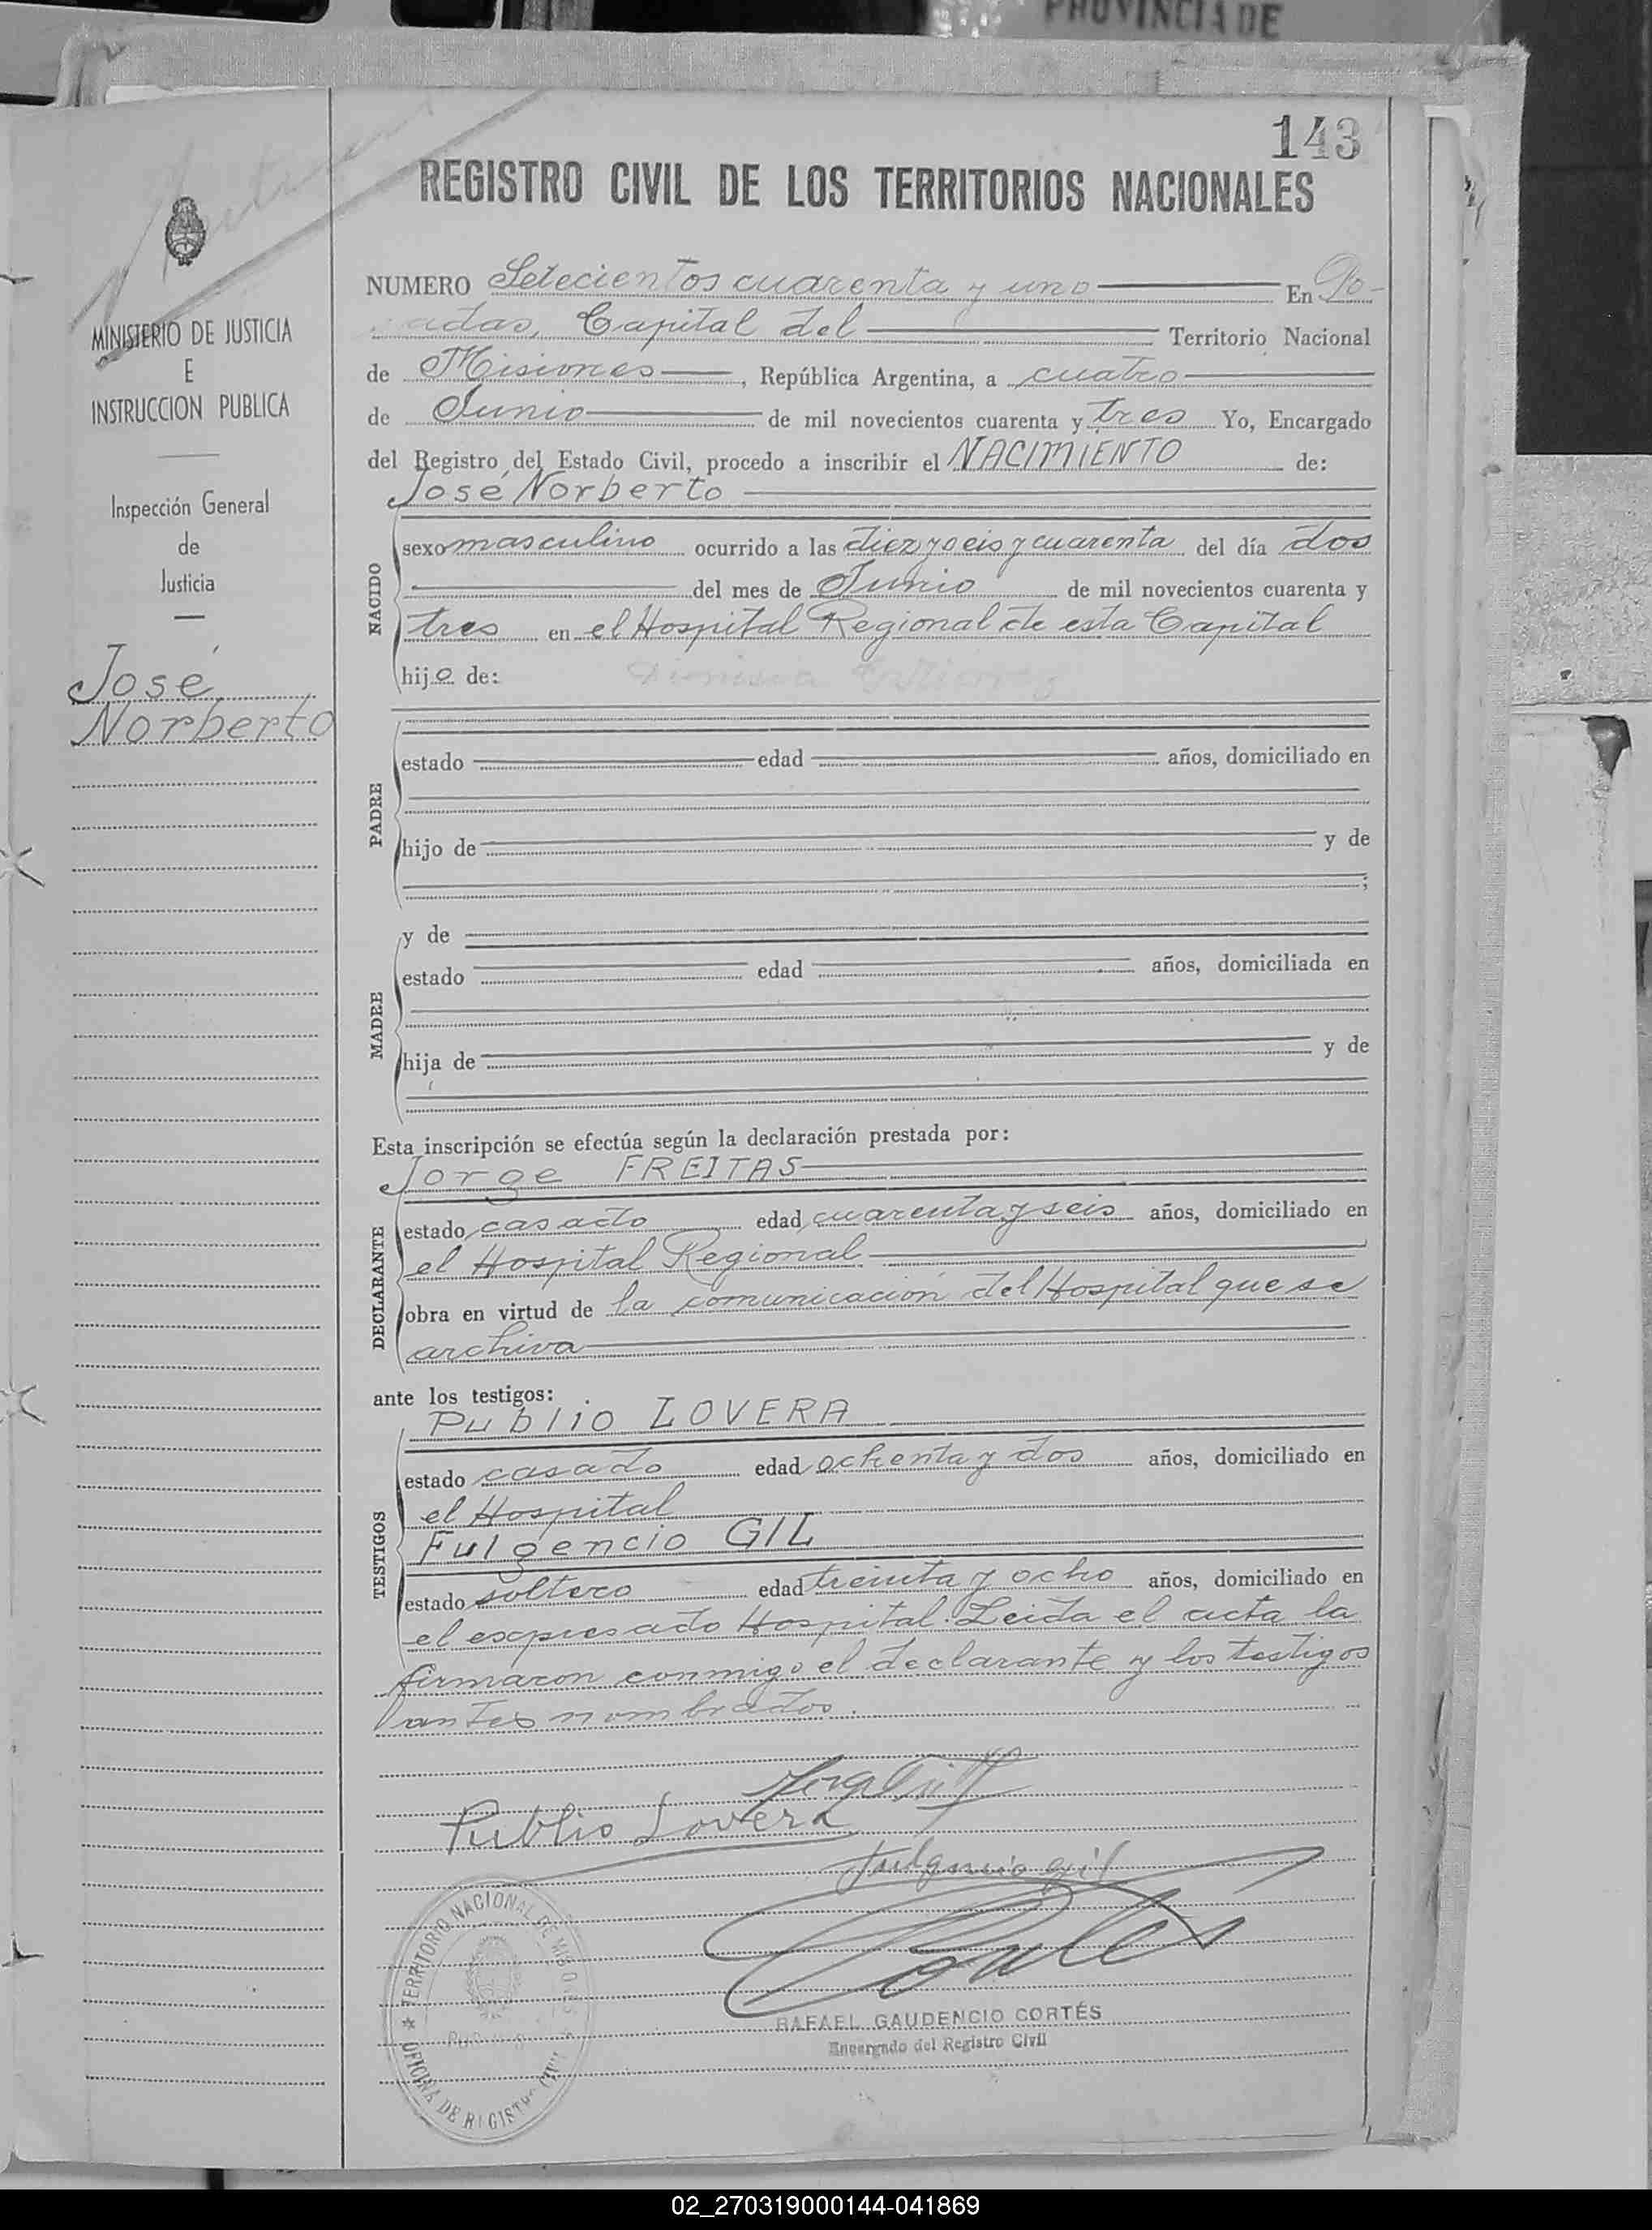 PROVINCIA DE
143
REGISTRO CIVIL DE LOS TERRITORIOS NACIONALES
MINISTERIO DE JUSTICIA
E
INSTRUCCION PUBLICA
Inspección General
de
Justicia
José
Norberto
NUMERO Setecientos cuarenta y uno En Po-
sadas, Capital del Territorio Nacional
de Misiones, República Argentina, a cuatro
de Junio de mil novecientos cuarenta y tres Yo, Encargado
del Registro del Estado Civil, procedo a inscribir el NACIMIENTO de:
José Norberto
NACIDO
sexo masculino ocurrido a las diez y seis y cuarenta del día dos
del mes de Junio de mil novecientos cuarenta y
tres en el Hospital Regional de esta Capital
hijo de:
PADRE
estado edad años, domiciliado en
hijo de y de
;
MADRE
y de
estado edad años, domiciliada en
hija de y de
Esta inscripción se efectúa según la declaración prestada por:
Jorge FREITAS
DECLARANTE
estado casado edad cuarenta y seis años, domiciliado en
el Hospital Regional
obra en virtud de la comunicación del Hospital que se
archiva
ante los testigos:
Publio LOVERA
TESTIGOS
estado casado edad ochenta y dos años, domiciliado en
el Hospital
Fulgencio GIL
estado soltero edad treinta y ocho años, domiciliado en
el expresado Hospital. Leida el acta la
firmaron conmigo el declarante y los testigos
antes nombrados.
Publio Lovera
Fulgencio gil
RAFAEL GAUDENCIO CORTÉS
Encargado del Registro Civil
TERRITORIO NACIONAL DE MISIONES
OFICINA DE REGISTRO CIVIL
02_270319000144-041869